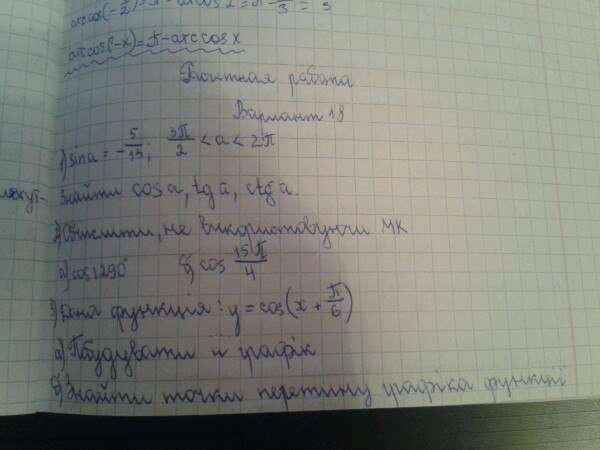 arccos(-x)=π-arccos x
работа
Вариант 18
1) sin a = -5/13; 3π/2 < a < 2π
Знайти cos a, tg a, ctg a.
2) Обчислити, не використовуючи МК
а) cos 1290° б) cos 15π/4
3) Дана функція: y = cos(x + π/6)
а) Побудувати її графік
б) Знайти точки перетину графіка функції